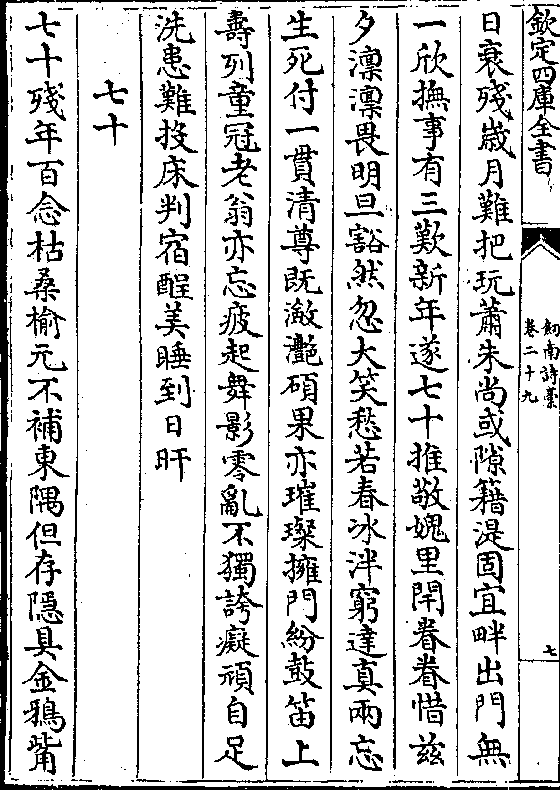 欽定四庫全書
劒南詩藁
卷二十九
七
日衰殘歲月難把玩蕭朱尚或隙籍湜固宜畔出門無
一欣撫事有三歎新年遂七十推敬媿里閈眷眷惜兹
夕凛凛畏明旦豁然忽大笑愁若春冰泮窮達真兩忘
生死付一貫清尊既瀲灧碩果亦璀璨擁門紛鼓笛上
壽列童冠老翁亦忘疲起舞影零亂不獨誇癡頑自足
洗患難投床判宿酲美睡到日旰
七十
七十殘年百念枯桑榆元不補東隅但存隱具金鴉觜